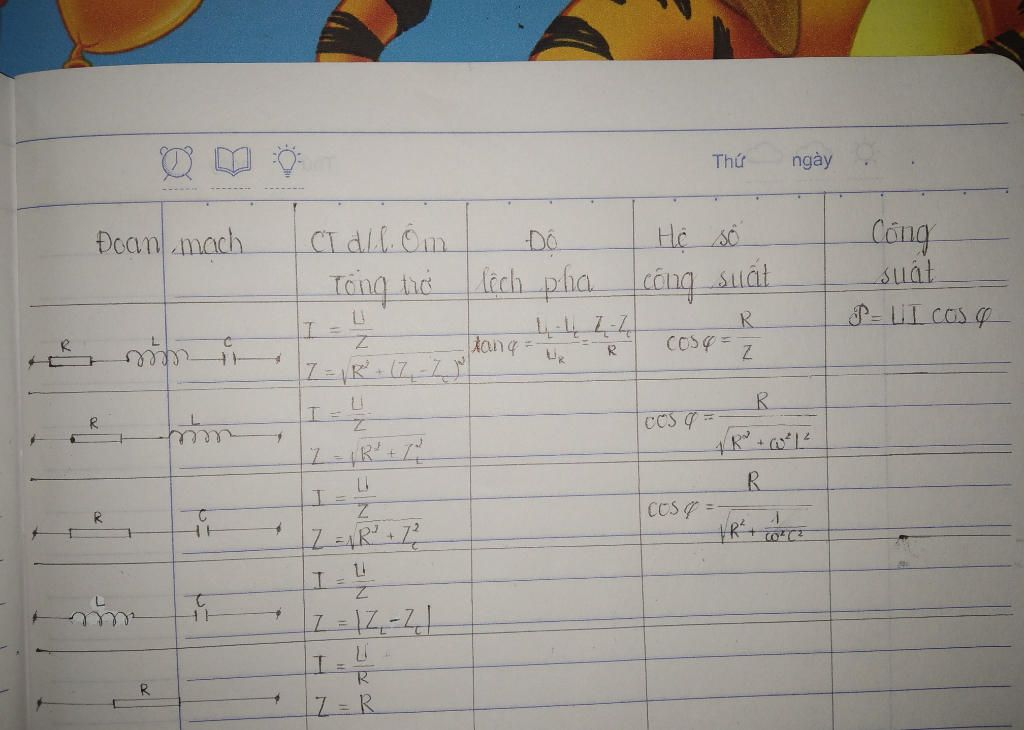 Thứ ngày . .
Đoạn mạch CT đ/l. Ôm Độ Hệ số Công
Tổng trở lệch pha công suất suất
R L C
I = U/Z
Z = √(R² + (Z_L - Z_C)²)
tan φ = (U_L - U_C)/U_R = (Z_L - Z_C)/R
cos φ = R/Z
P = UI cos φ
R L
I = U/Z
Z = √(R² + Z_L²)
cos φ = R/√(R² + ω²L²)
R C
I = U/Z
Z = √(R² + Z_C²)
cos φ = R/√(R² + 1/(ω²C²))
L C
I = U/Z
Z = |Z_L - Z_C|
R
I = U/R
Z = R